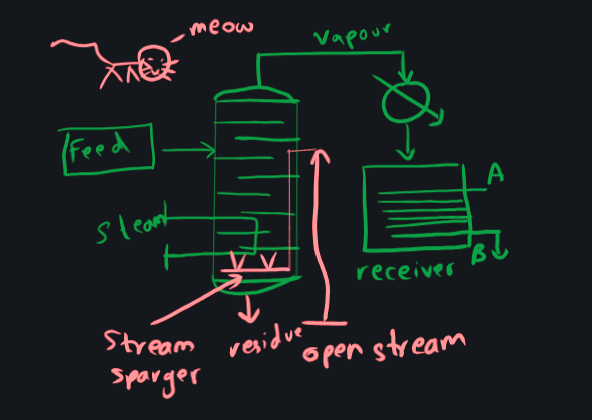 meow
vapour
Feed
A
Steam
B
receiver
Stream
sparger
residue
open stream